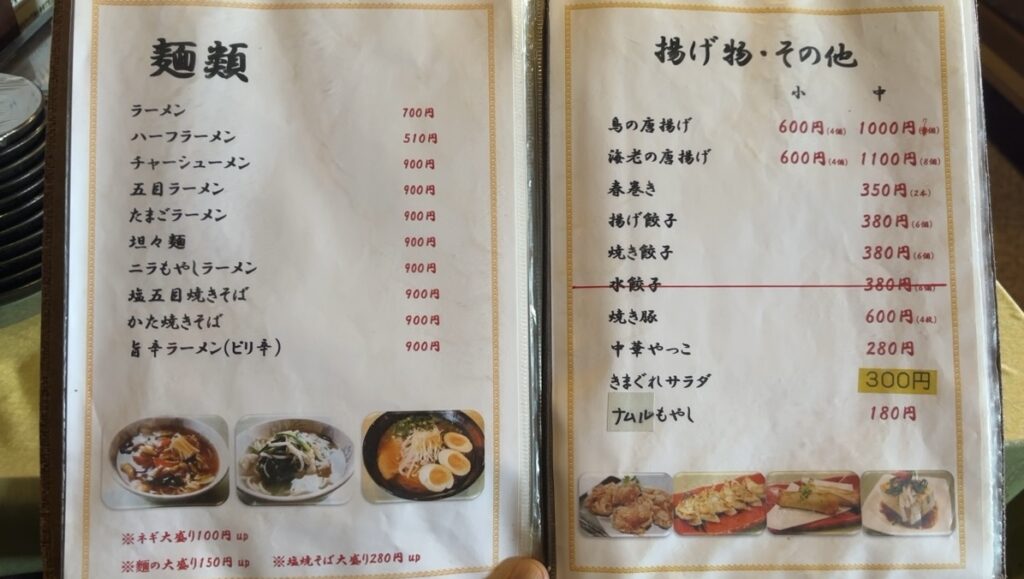 麺類
ラーメン 700円
ハーフラーメン 510円
チャーシューメン 900円
五目ラーメン 900円
たまごラーメン 900円
坦々麺 900円
ニラもやしラーメン 900円
塩五目焼きそば 900円
かた焼きそば 900円
旨辛ラーメン(ピリ辛) 900円
※ネギ大盛り100円 up
※麺の大盛り150円 up ※塩焼そば大盛り280円 up
揚げ物・その他
小 中
鳥の唐揚げ 600円(4個) 1000円(7個)
海老の唐揚げ 600円(4個) 1100円(8個)
春巻き 350円(2本)
揚げ餃子 380円(6個)
焼き餃子 380円(6個)
水餃子 380円(6個)
焼き豚 600円(4枚)
中華やっこ 280円
きまぐれサラダ 300円
ナムルもやし 180円